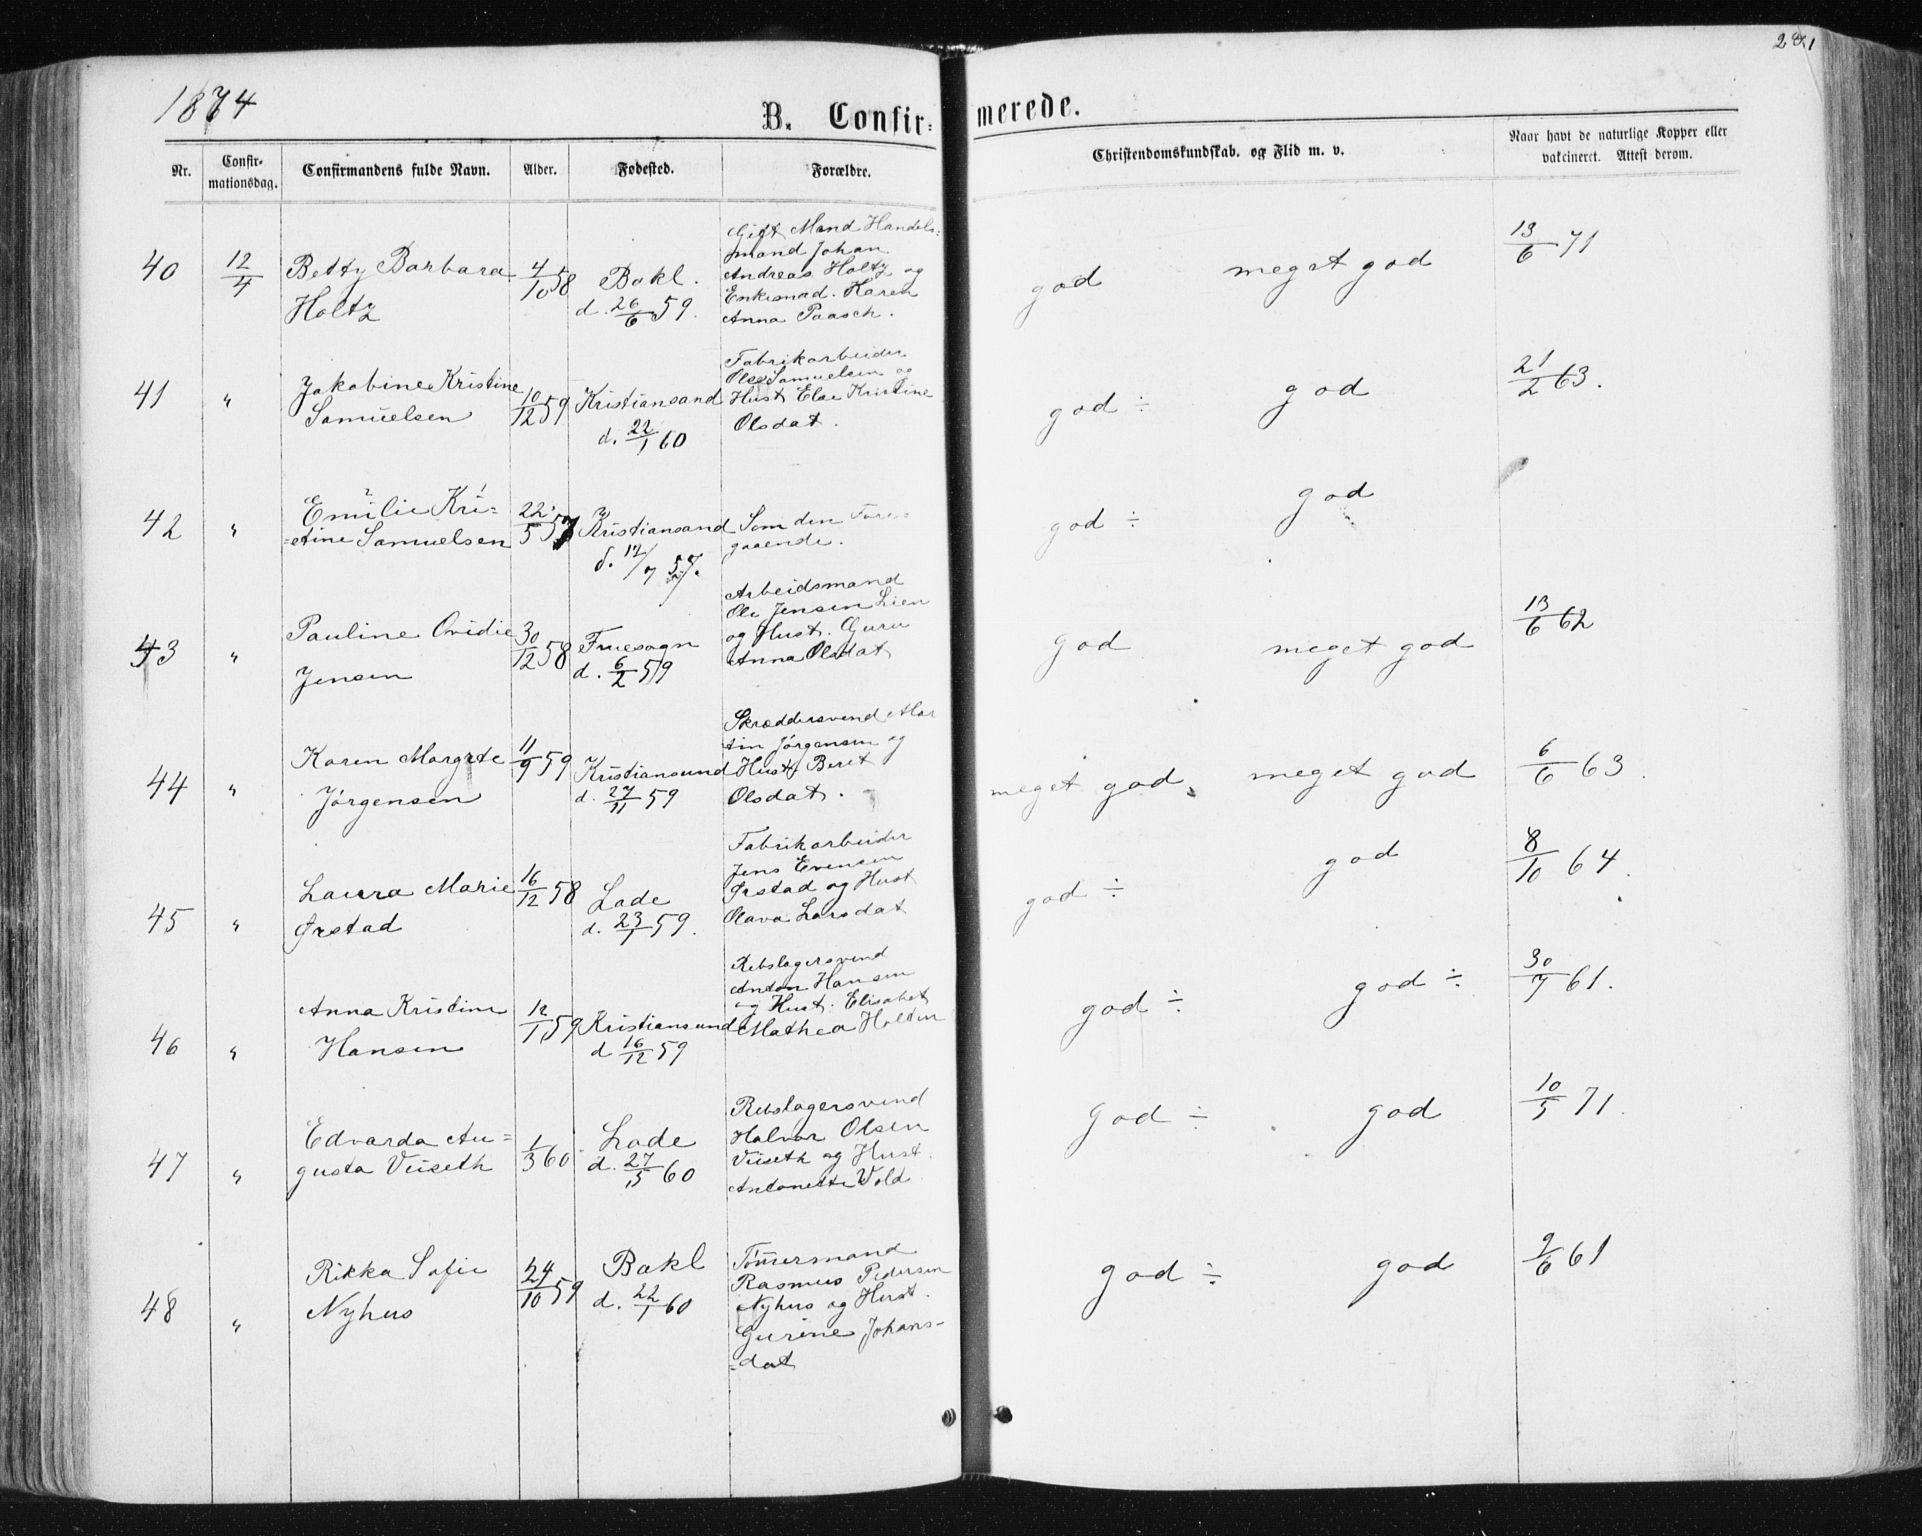 281
1874
B. Confir=
merede.
Nr.
Confir-
mationsdag.
Confirmandens fulde Navn.
Alder.
Fødested.
Forældre.
Christendomskundskab. og Flid m. v.
Naar havt de naturlige Kopper eller
vakcineret. Attest derom.
40
12/4
Betty Barbara
Holtz
4/10 58
Bakl.
d. 26/6 59.
Gift Mand Handels=
mand Johan
Andreas Holtz og
Enkemad. Karen
Anna Paasch.
god
meget god
13/6 71
41
"
Jakobine Kristine
Samuelsen
10/12 59
Kristiansand
d. 22/1 60
Fabrikarbeider
Ole Samuelsen og
Hust Else Kristine
Olsdat.
god ÷
god
21/2 63.
42
"
Emilie Kri=
=stine Samuelsen
22/5 57
Kristiansand
d. 12/7 57.
Som den Fore=
gaaende.
god ÷
god
43
"
Pauline Ovidie
Jensen
30/12 58
Fruesogn
d. 6/2 59
Arbeidsmand
Ole Jensen Lien
og Hust. Guru
Anna Olsdat
god
meget god
13/6 62
44
"
Karen Margrete
Jørgensen
11/9 59
Kristiansund
d. 27/11 59
Skræddersvend Mar
tin Jørgensen og
Hust Beret
Olsdat.
meget god
meget god
6/6 63.
45
"
Laura Marie
Ørstad
16/12 58
Lade
d. 23/1 59.
Fabrikarbeider
Jens Evensen
Ørstad og Hust
Olava Larsdat
god ÷
god
8/10 64.
46
"
Anna Kristine
Hansen
12/1 59
Kristiansund
d 16/12 59
Rebslagersvend
Anton Hansen
og Hust. Elisabet
Mathea Holten
god ÷
god ÷
30/7 61.
47
"
Edvarda Au=
gusta Viiseth
1/3 60
Lade
d. 27/5 60
Rebslagersvend
Halvor Olsen
Viiseth og Hust.
Antonette Vold
god ÷
god
10/5 71.
48
"
Rikka Sofie
Nyhus
24/10 59
Bakl
d. 22/1 60
Tömmermand
Rasmus Pedersen
Nyhus og Hust.
Gurine Johans-
=dat
god ÷
god
9/6 61